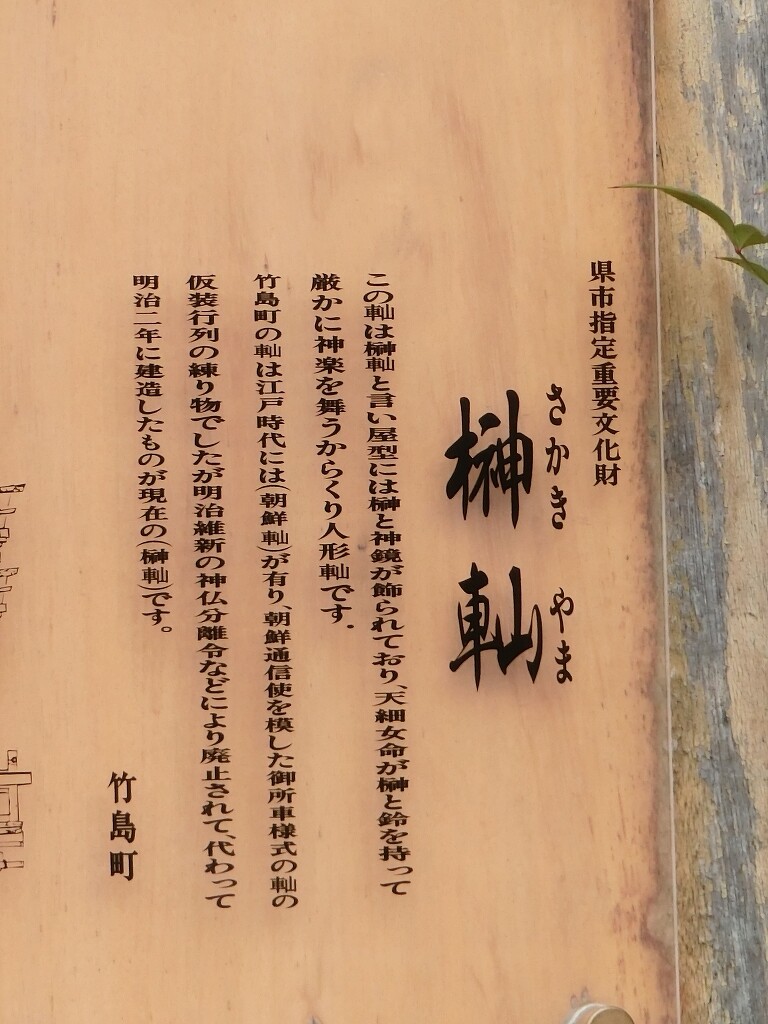 県市指定重要文化財
さかき やま
榊 軕
この軕は榊軕と言い屋型には榊と神鏡が飾られており、天細女命が榊と鈴を持って
厳かに神楽を舞うからくり人形軕です。
竹島町の軕は江戸時代には(朝鮮軕)が有り、朝鮮通信使を模した御所車様式の軕の
仮装行列の練り物でしたが明治維新の神仏分離令などにより廃止されて、代わって
明治二年に建造したものが現在の(榊軕)です。
竹島町